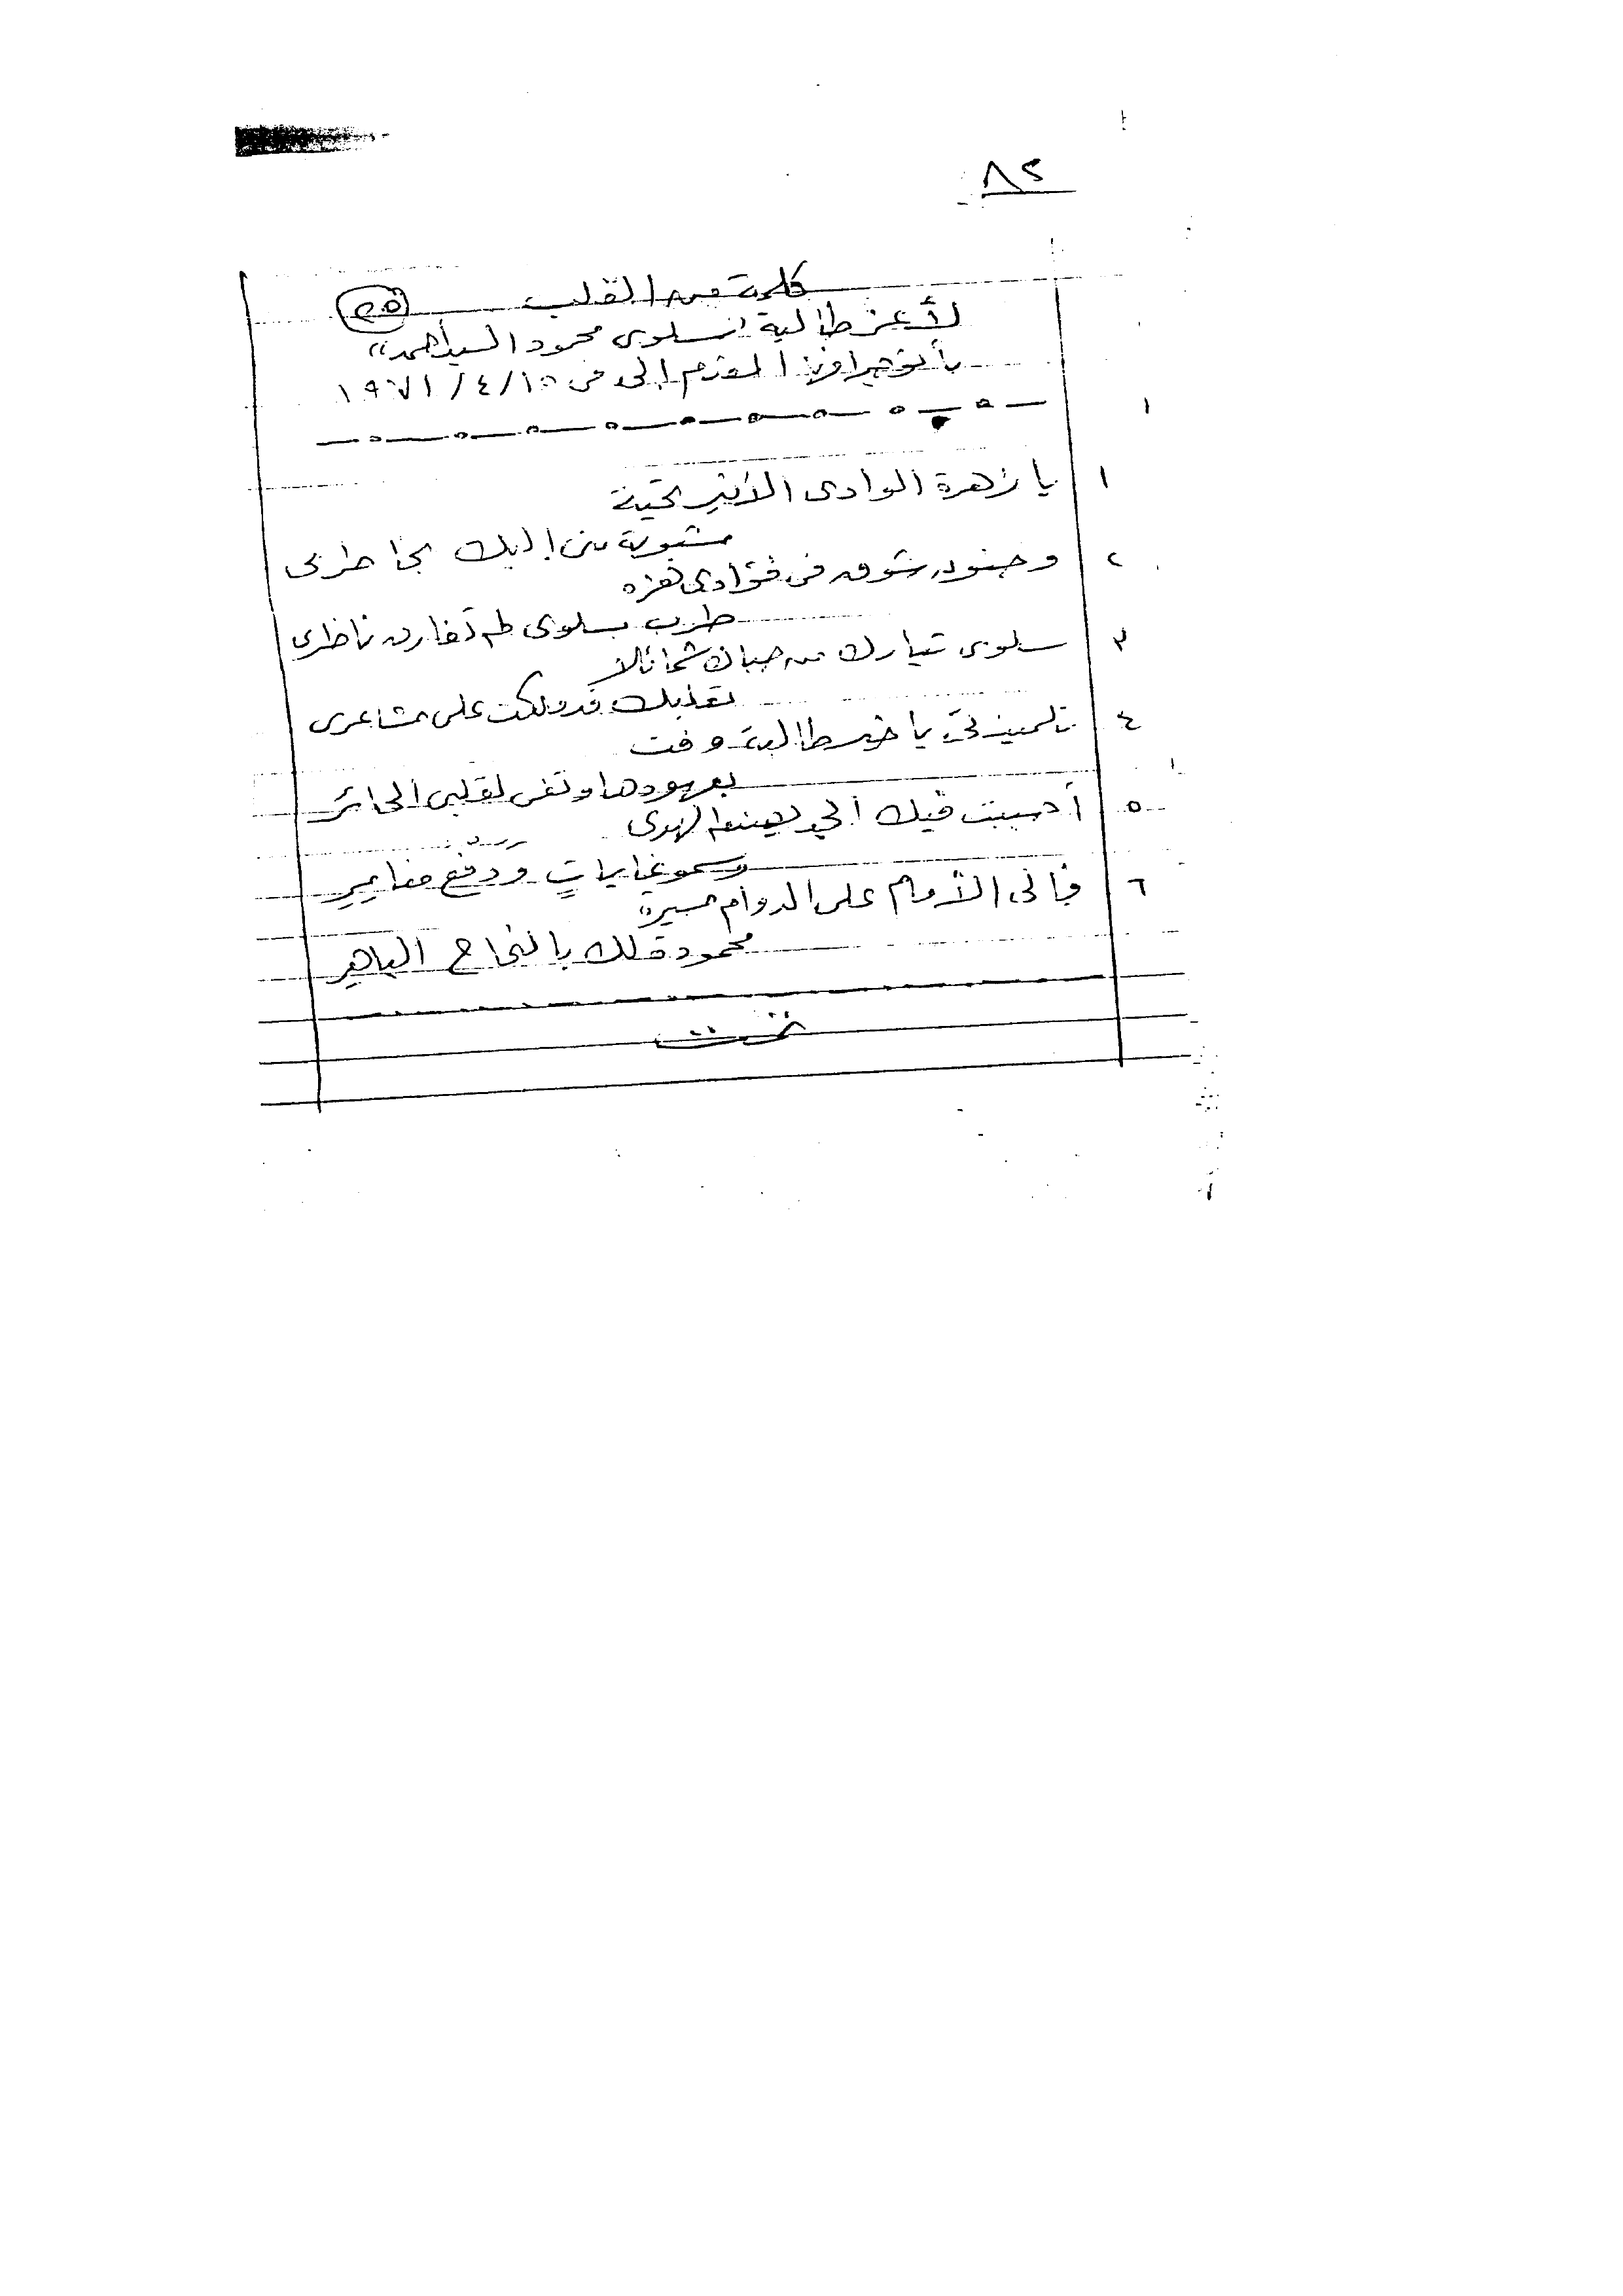 ٨٢
كلمة من القلب
٢٥
لأعز طالبة "سلوى محمود السيد أحمد"
بأتوجرافها المقدم إلى فى ١٩٧١/٤/١٥
١ يا زهرة الوادى الأثير تحية
مشبوبة منى إليك بخاطرى
٢ وجنود شوق فى فؤادى تهزه
طرب بسلوى لم تفارق ناظرى
٣ سلوى تبارك من حباك شمائلا
تهذيبك قد ملكت على مشاعرى
٤ تلميذتى يا خير طالبة وفت
بعهودها وتفى لقلبى الحائر
٥ أحببت فيك الجد يصنعه الهدى
وسمو غاياتٍ ودفع
٦ فإلى الأمام على الدوام مسيرة
محمودة لك بالنجاح الباهر
تمت